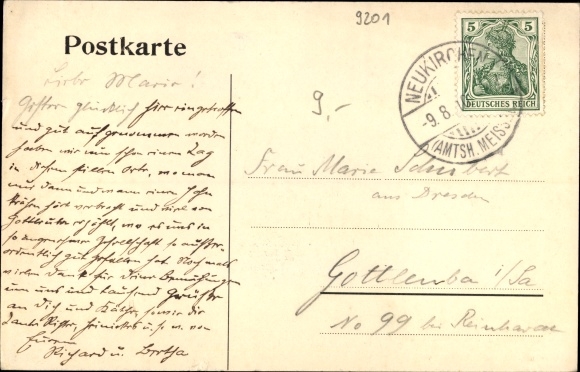 9201
Postkarte
5 5
DEUTSCHES REICH
NEUKIRCHEN
-9.8.1
(AMTSH. MEISS
9,-
Liebe Marie!
Gestern glücklich hier eingetroffen
und gut aufgenommen worden
haben wir nun schon einen Tag
in diesem stillen Orte, wo man
nur dann und wann einen Hahn
krähen hört verbracht und viel von
Gottleuba erzählt, wo es uns in
so angenehmer Gesellschaft so außer-
ordentlich gut gefallen hat. Nochmals
vielen Dank für Deine Bemühungen
um uns und tausend Grüße
an Dich und Käthe, sowie die
u. s. w. von
Euren
Richard u. Bertha
Frau Marie Schubert
aus Dresden
Gottleuba i/Sa
No 99 bei